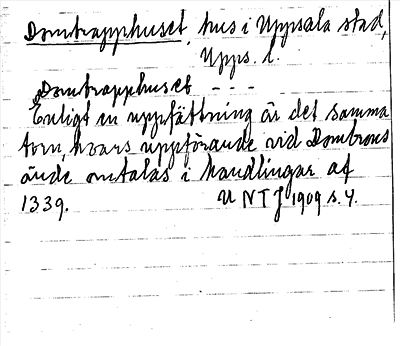 Domtrapphuset, hus i Uppsala stad,
Upps. l.
Domtrapphuset - - -
Enligt en uppfattning är det samma
torn, hvars uppförande vid Dombrons
ände omtalas i handlingar af
1339. UNTJ 1909 s. 4.